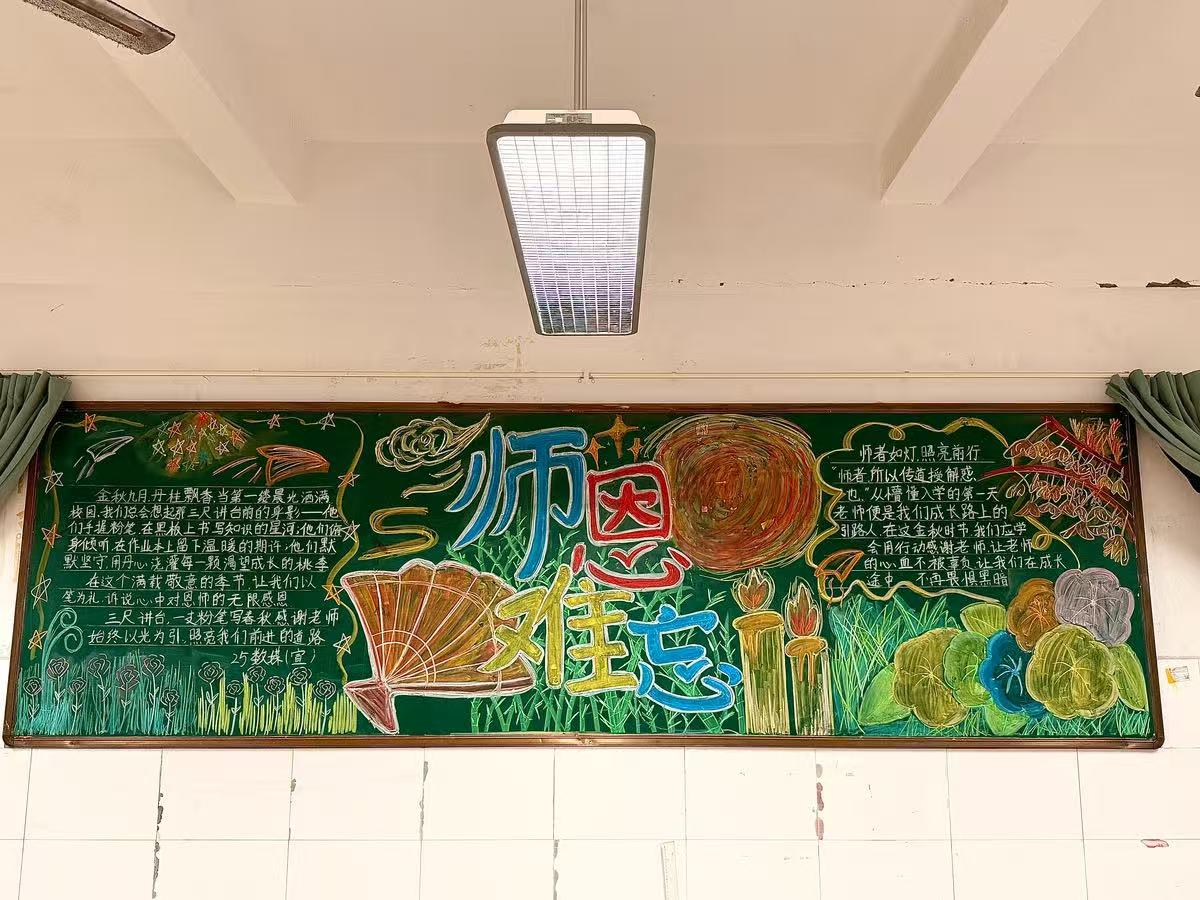 金秋九月,丹桂飘香,当第一缕晨光洒满
校园,我们总会想起那三尺讲台前的身影——他
们手握粉笔,在黑板上书写知识的星河;他们俯
身倾听,在作业本上留下温暖的期许;他们默
默坚守,用丹心浇灌每一颗渴望成长的桃李
在这个满载敬意的季节,让我们以
笔为礼,诉说心中对恩师的无限感恩
三尺讲台,一支粉笔写春秋感谢老师
始终以光为引,照亮我们前进的道路
25数媒(宣)
师恩
难忘
师者如灯,照亮前行
"师者,所以传道授解惑
也."从懵懂入学的第一天
老师便是我们成长路上的
引路人.在这金秋时节,我们应学
会用行动感谢老师,让老师
的心血不被辜负,让我们在成长
途中 不再畏惧黑暗